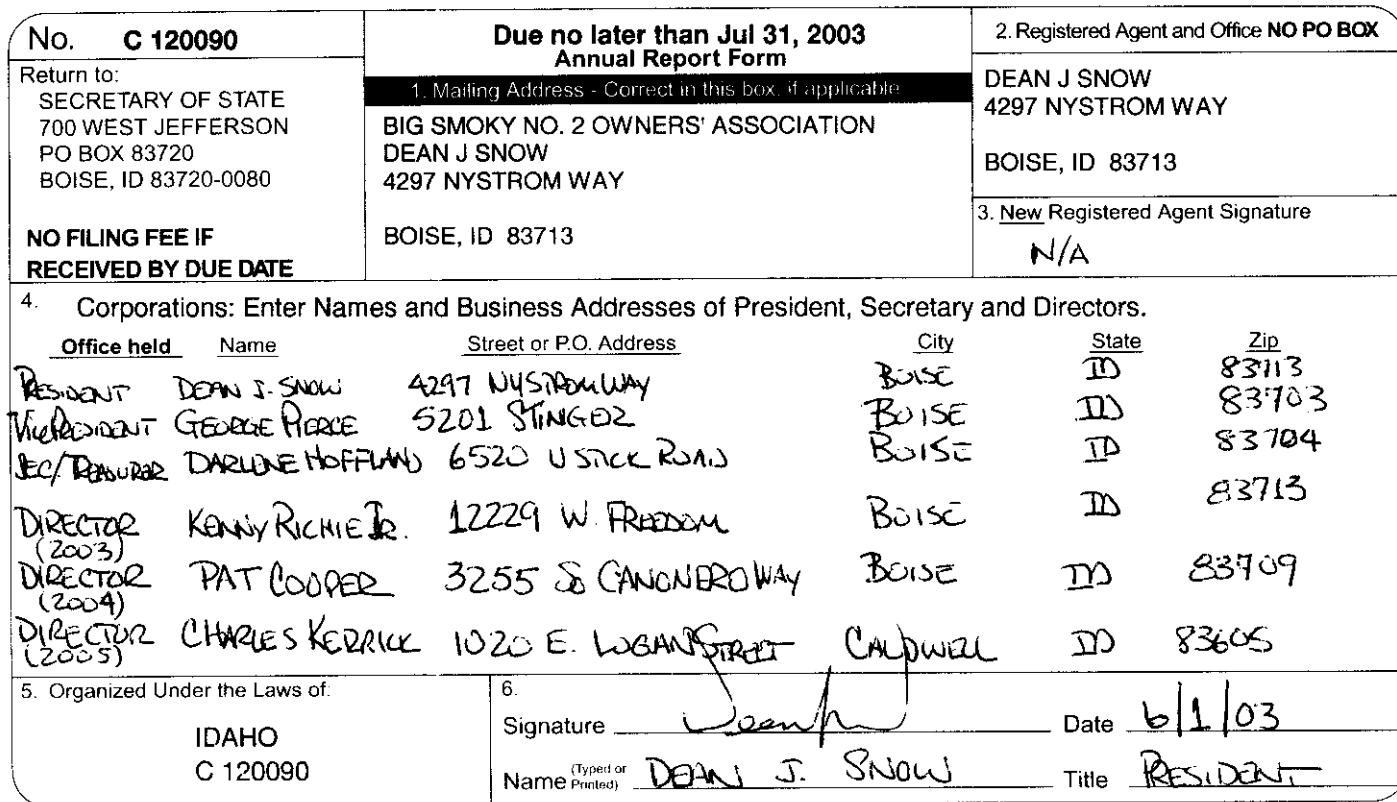 No. C 120090
Return to:
SECRETARY OF STATE
700 WEST JEFFERSON
PO BOX 83720
BOISE, ID 83720-0080
NO FILING FEE IF
RECEIVED BY DUE DATE
Due no later than Jul 31, 2003
Annual Report Form
1. Mailing Address - Correct in this box, if applicable
BIG SMOKY NO. 2 OWNERS' ASSOCIATION
DEAN J SNOW
4297 NYSTROM WAY
BOISE, ID 83713
2. Registered Agent and Office NO PO BOX
DEAN J SNOW
4297 NYSTROM WAY
BOISE, ID 83713
3. New Registered Agent Signature
N/A
4. Corporations: Enter Names and Business Addresses of President, Secretary and Directors.
Office held Name Street or P.O. Address City State Zip
PRESIDENT DEAN J. SNOW 4297 NYSTROM WAY BOISE ID 83713
VICE PRESIDENT GEORGE PIERCE 5201 STINGER BOISE ID 83703
SEC/TREASURER DARLENE HOFFLAND 6520 USTICK ROAD BOISE ID 83704
DIRECTOR KENNY RICHIE JR. 12229 W. FREEDOM BOISE ID 83713
(2003)
DIRECTOR PAT COOPER 3255 SO CANONERO WAY BOISE ID 83709
(2004)
DIRECTOR CHARLES KERRICK 1020 E. LOGAN STREET CALDWELL ID 83605
(2005)
5. Organized Under the Laws of:
IDAHO
C 120090
6.
Signature Date 6/1/03
Name (Typed or Printed) DEAN J. SNOW Title PRESIDENT